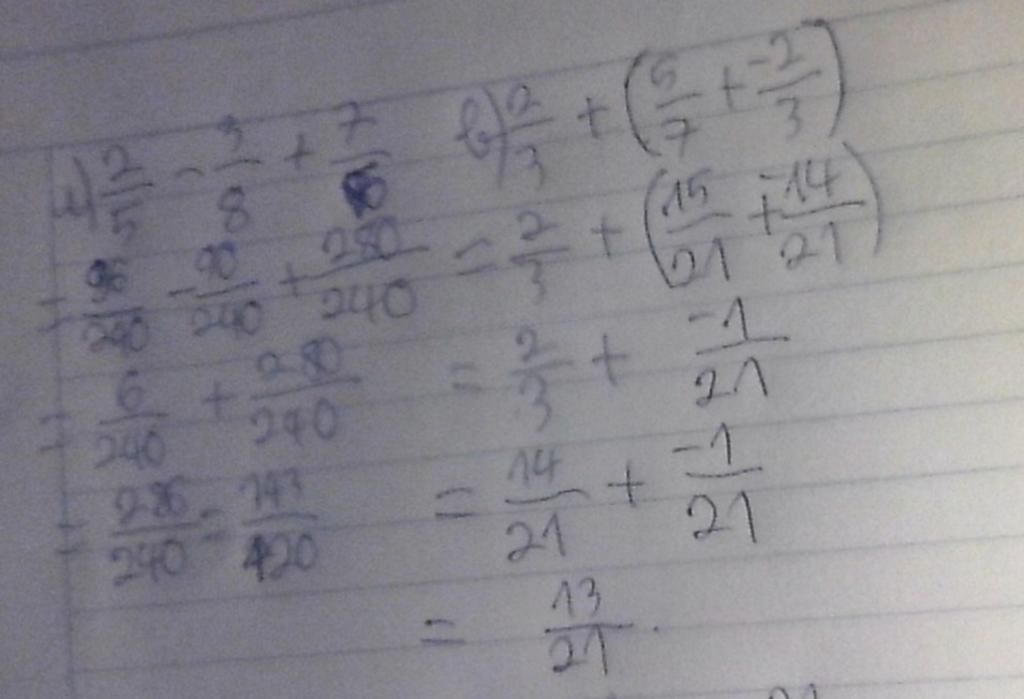 a) 2/5 - 3/8 + 7/6
= 96/240 - 90/240 + 280/240
= 6/240 + 280/240
= 286/240 = 143/120
b) 2/3 + (5/7 + -2/3)
= 2/3 + (15/21 + -14/21)
= 2/3 + -1/21
= 14/21 + -1/21
= 13/21.